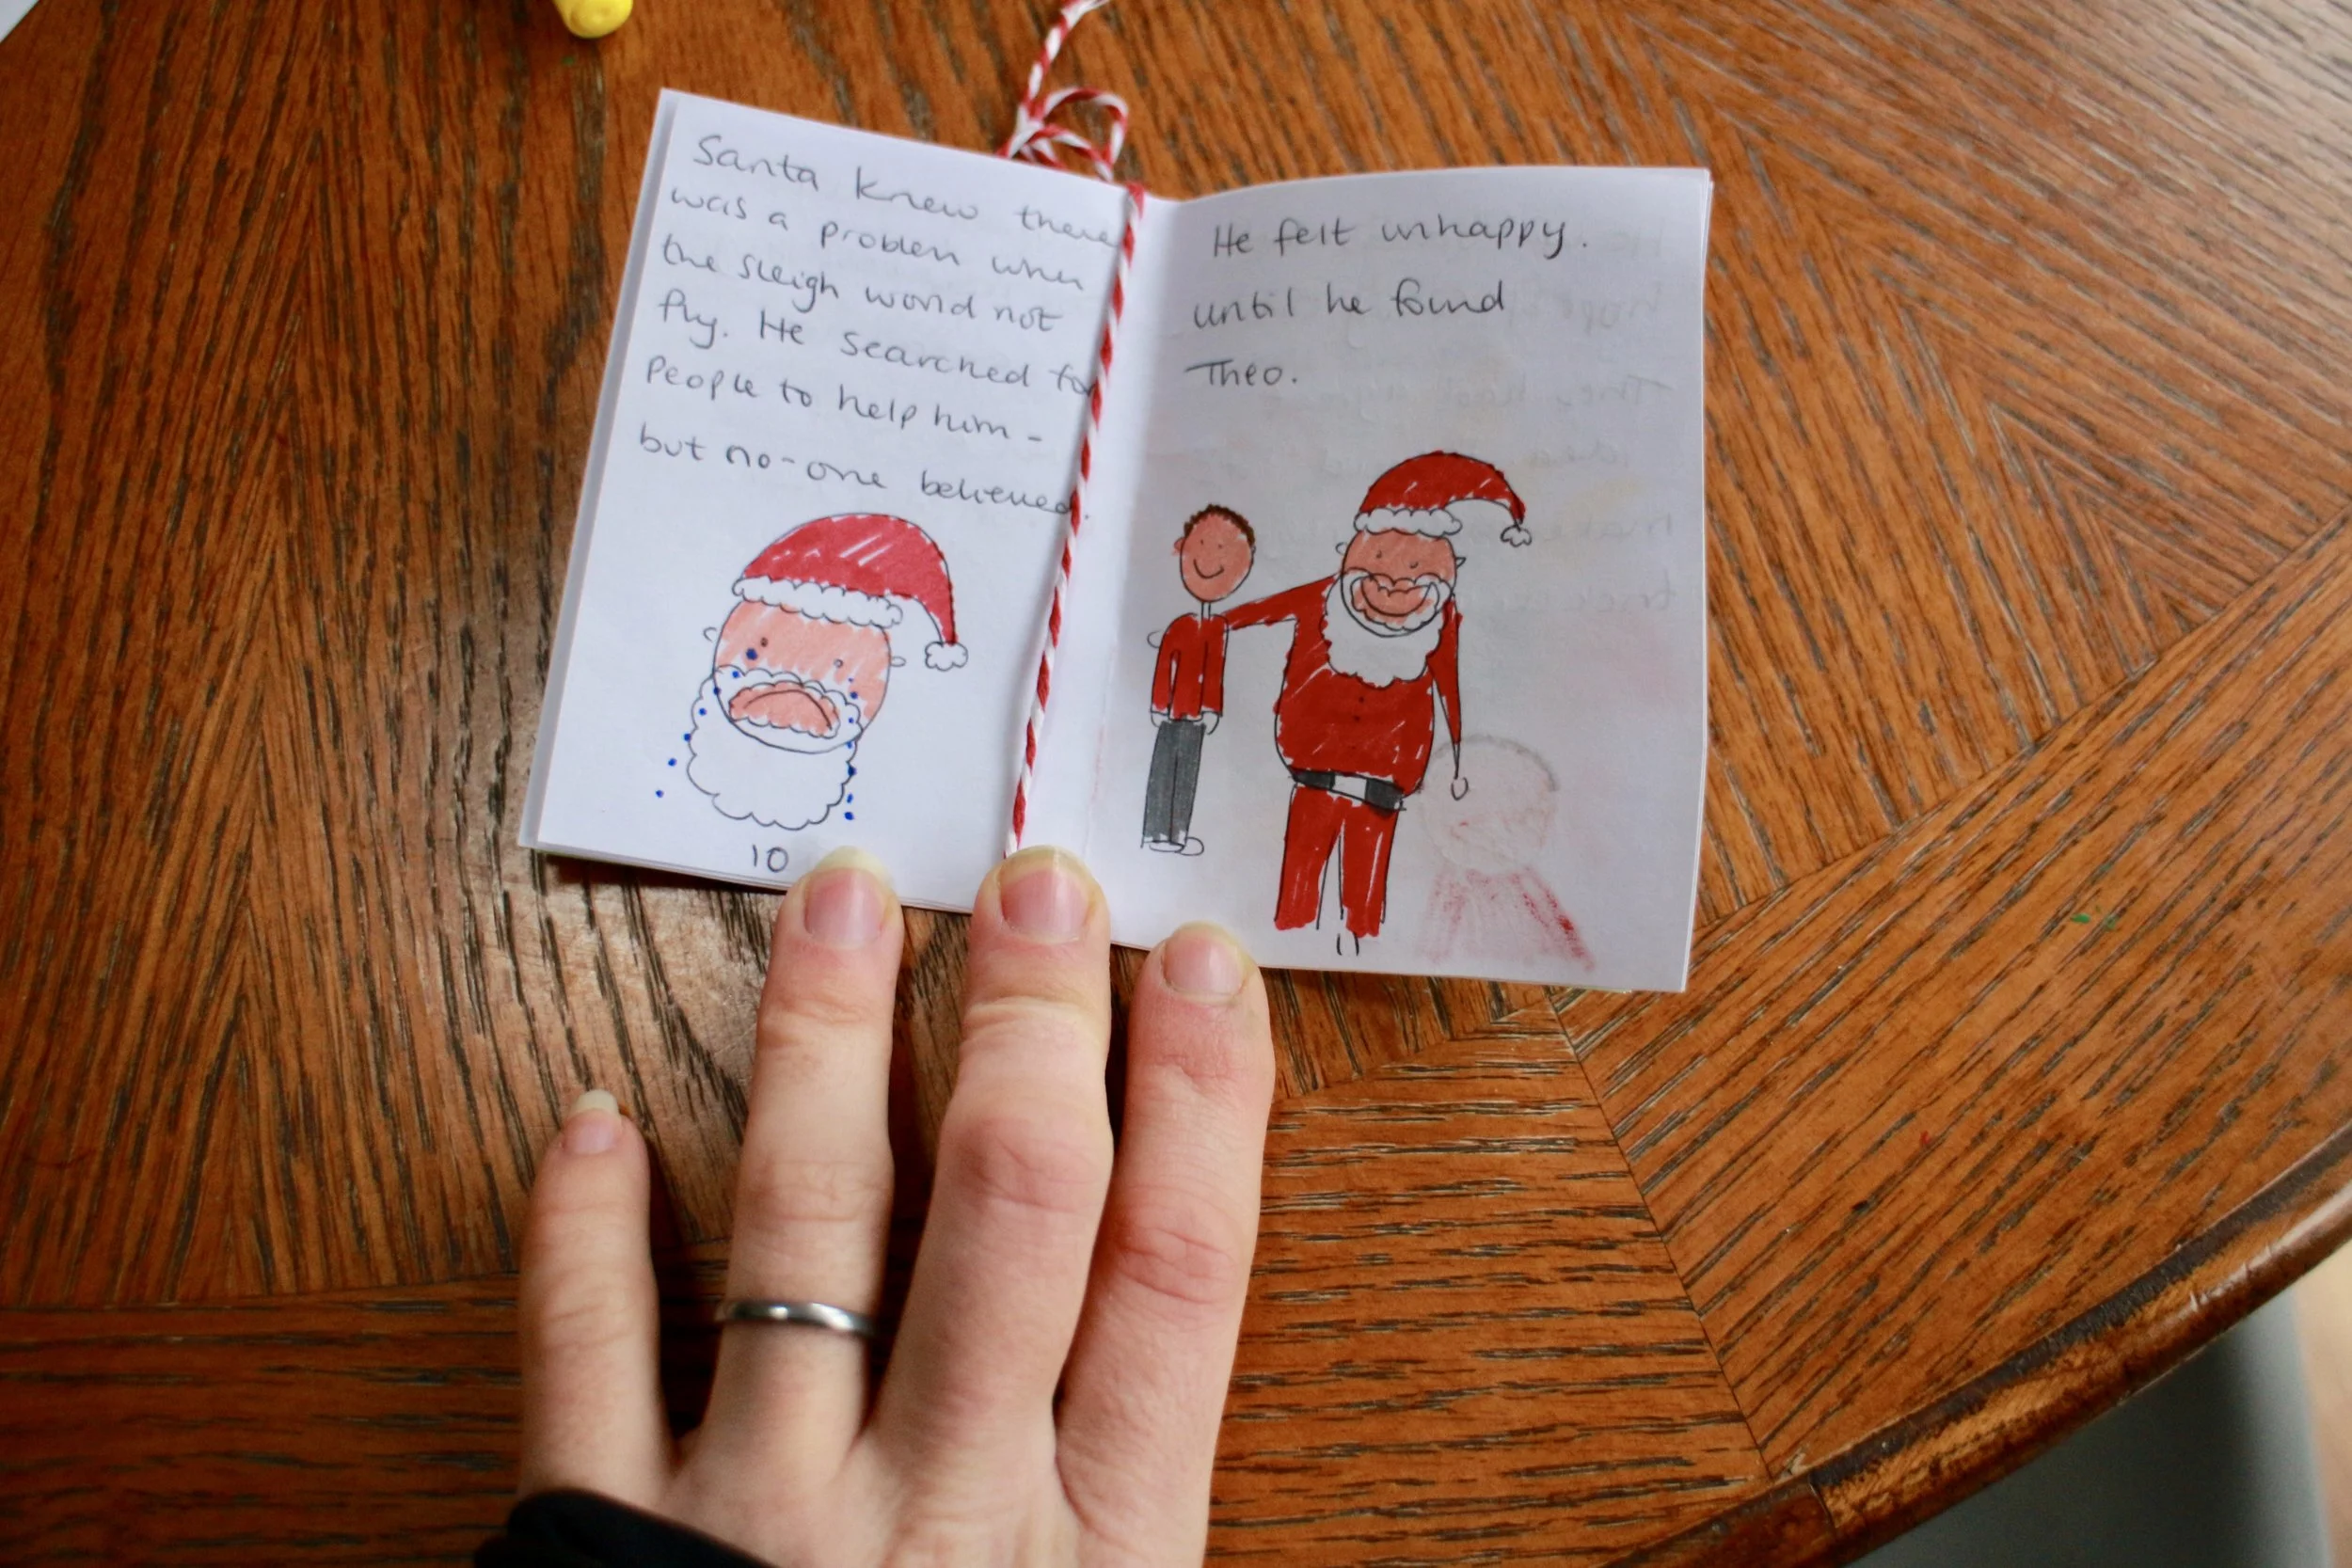 Santa knew there
was a problem when
the sleigh would not
fly. He searched for
people to help him -
but no-one believed.
10
He felt unhappy.
until he found
Theo.
11